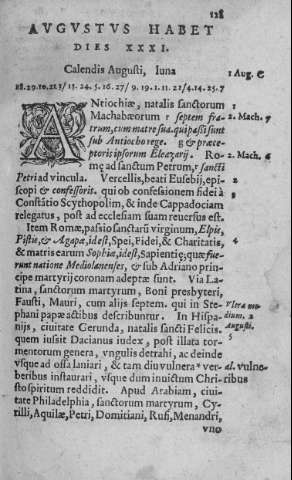 128
AVGVSTVS HABET
DIES XXXI.
Calendis Augusti, luna
1 Aug. C
ANtiochiæ, natalis sanctorum
1
Machabæorum r septem fra-
2. Mach. 7
trum, cum matre sua. qui passi sunt
sub Antiocho rege. & præce-
ptoris ipsorum Eleazarij. Ro-
2. Mach. 6
mę ad sanctum Petrum, r sancti
Petri ad vincula. Vercellis, beati Eusebij, epi-
2
scopi & confessorit. qui ob confessionem fidei à
3
Cōstātio Scythopolim, & inde Cappadociam
relegatus, post ad ecclesiam suam reuersus est.
Item Romæ, passio sanctarū virginum, Elpis,
Pistis, & Agapæ, idest, Spei, Fidei, & Charitatis,
4
& matris earum Sophiæ, idest, Sapientię, quæ fue-
runt natione Mediolanenses, & sub Adriano prin-
cipe martyrij coronam adeptæ sunt. Via La-
tina, sanctorum martyrum, Boni presbyteri,
Fausti, Mauri, cum alijs septem. qui in Ste-
phani papæ actibus describuntur. In Hispa-
nijs, ciuitate Gerunda, natalis sancti Felicis.
Augusti.
quem iussit Dacianus iudex, post illata tor-
5
mentorum genera, vngulis detrahi, ac deinde
vsque ad ossa laniari, & tam diu vulnera ver
al. vulne-
beribus instaurari, vsque dum inuictum Chri
ribus
sto spiritum reddidit. Apud Arabiam, ciui-
tate Philadelphia, sanctorum martyrum, Cy-
rilli, Aquilæ, Petri, Domiciani, Rufi, Menandri,
vno